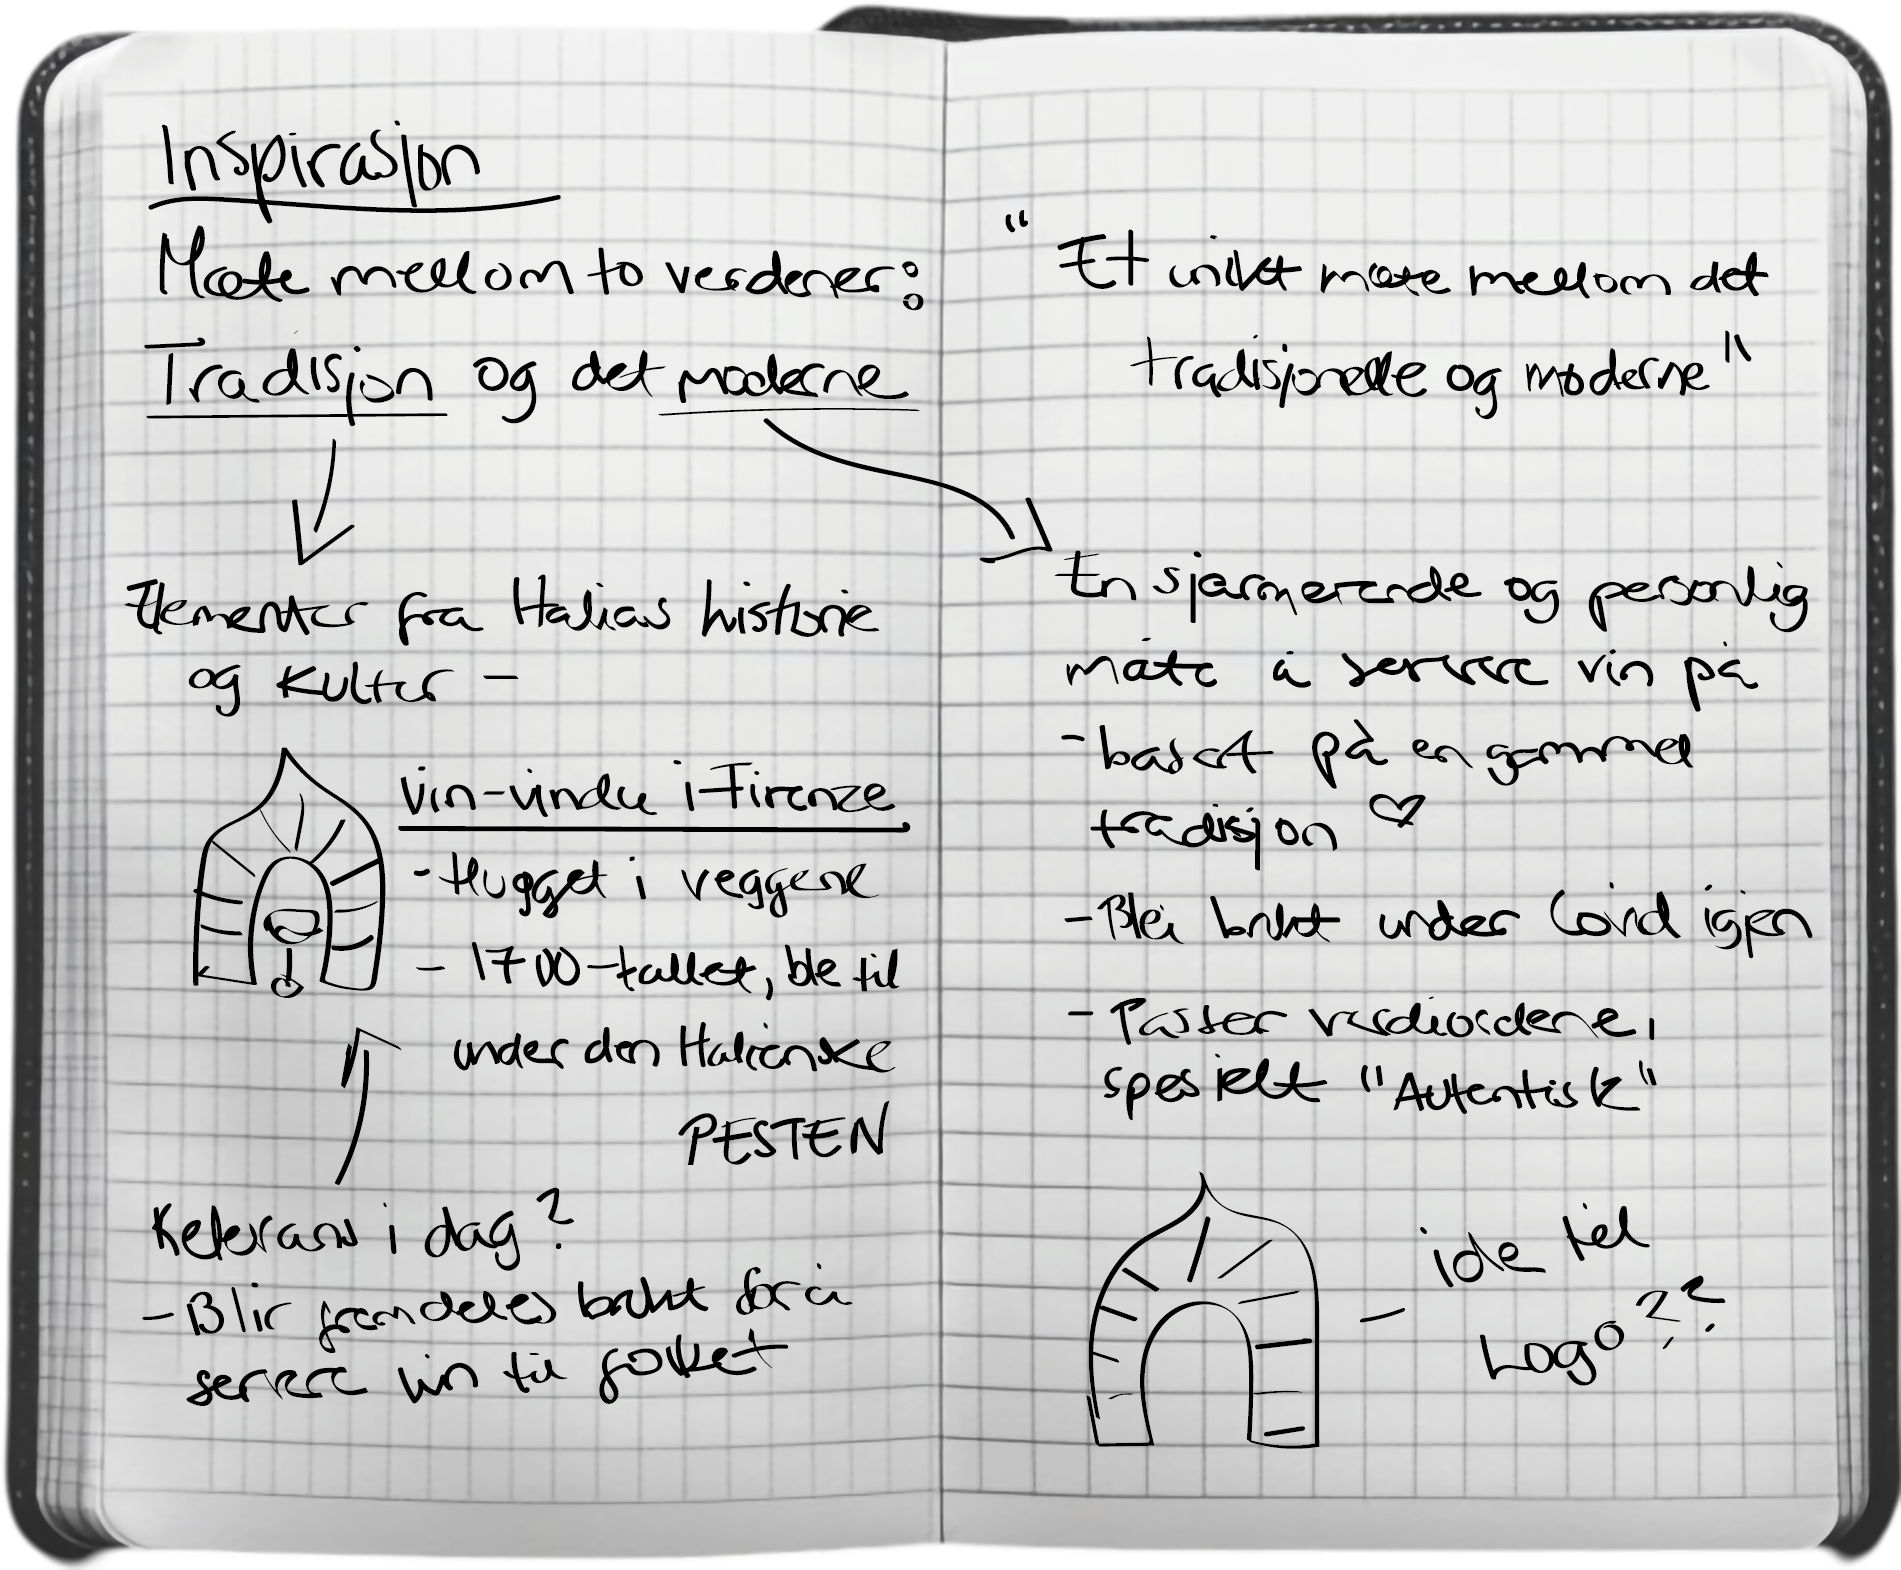 Inspirasjon
Møte mellom to verdener:
Tradisjon og det moderne
Elementer fra Italias historie
og kultur –
Vin-vindu i Firenze
- Hugget i veggene
- 1700-tallet, ble til
under den Italienske
PESTEN
Referans i dag?
- Blir fremdeles brukt for å
servere vin til folket
"Et unikt møte mellom det
tradisjonelle og moderne"
En sjarmerende og personlig
måte å servere vin på
- basert på en gammel
tradisjon ♡
- Blei brukt under Covid igjen
- Passer verdiordene,
spesielt "Autentisk"
– ide til
Logo??